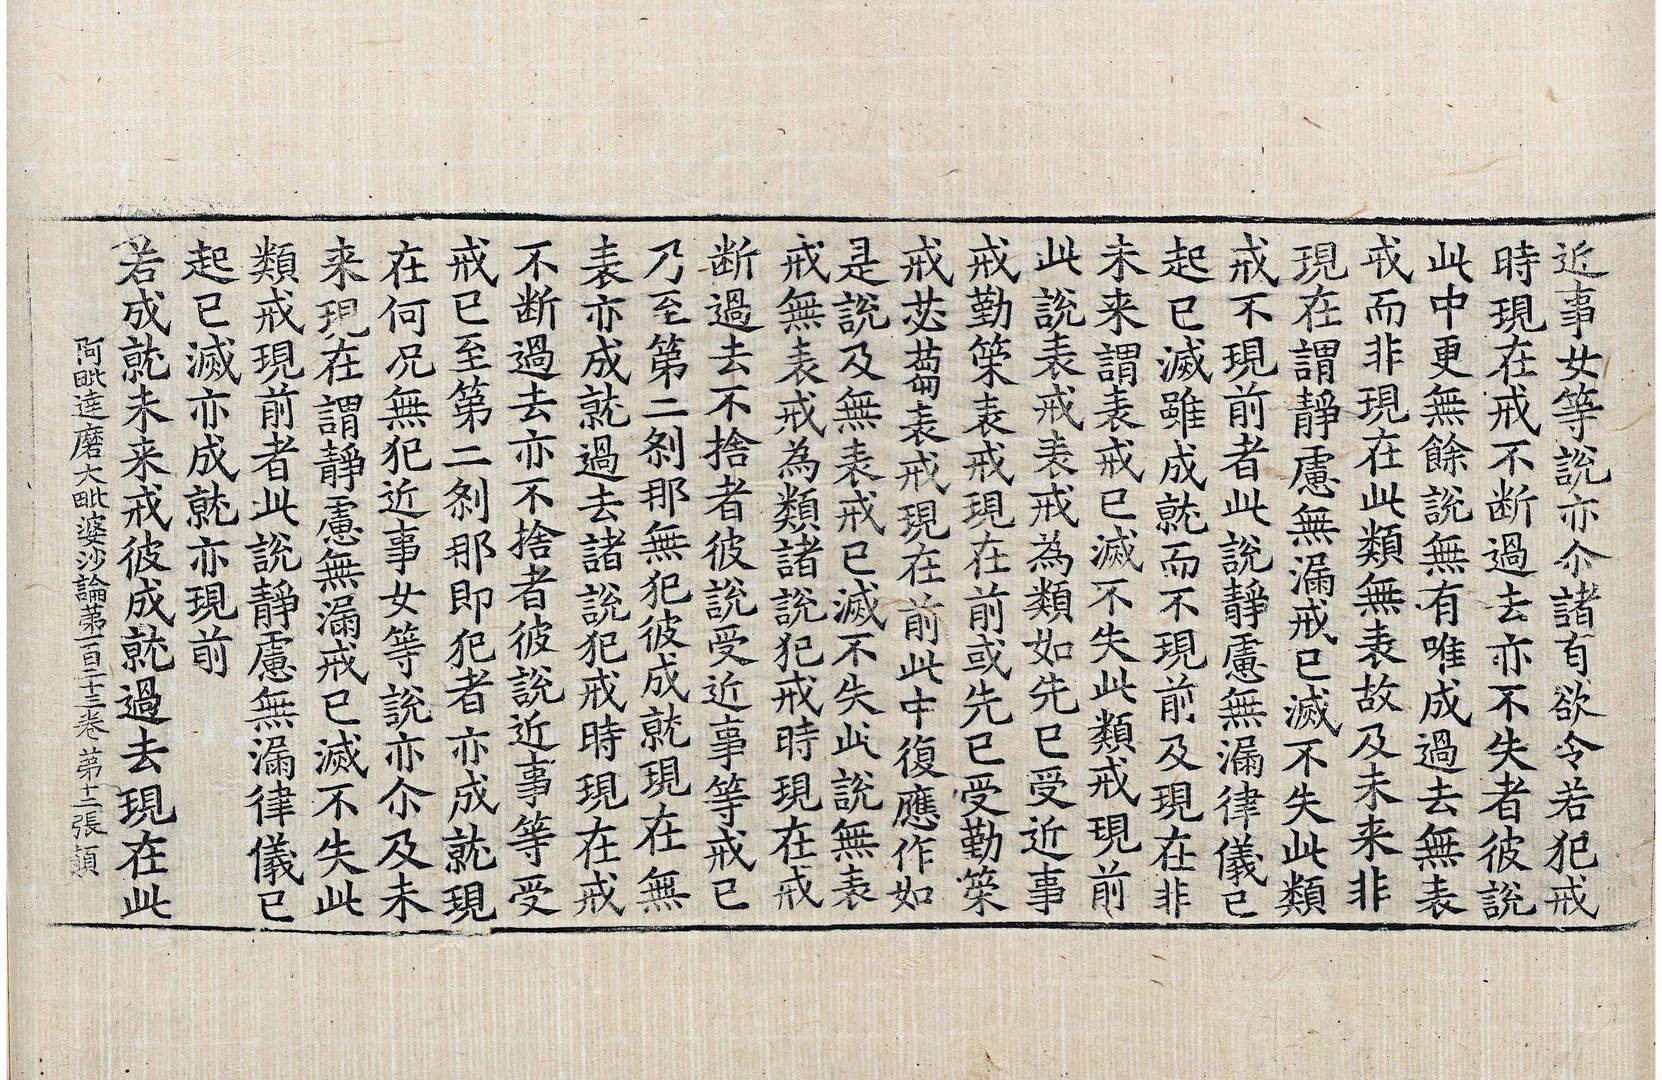 近事女等說亦尒諸有欲令若犯戒
時現在戒不断過去亦不失者彼說
此中更無餘說無有唯成過去無表
戒而非現在此類無表故及未来非
現在謂靜慮無漏戒已滅不失此類
戒不現前者此說靜慮無漏律儀已
起已滅雖成就而不現前及現在非
未来謂表戒已滅不失此類戒現前
此說表戒表戒為類如先已受近事
戒勤策表戒現在前或先已受勤策
戒苾蒭表戒現在前此中復應作如
是說及無表戒已滅不失此說無表
戒無表戒為類諸說犯戒時現在戒
断過去不捨者彼說受近事等戒已
乃至第二剎那無犯彼成就現在無
表亦成就過去諸說犯戒時現在戒
不断過去亦不捨者彼說近事等受
戒已至第二剎那即犯者亦成就現
在何况無犯近事女等說亦尒及未
来現在謂靜慮無漏戒已滅不失此
類戒現前者此說靜慮無漏律儀已
起已滅亦成就亦現前
若成就未来戒彼成就過去現在此
阿毗達磨大毗婆沙論第一百二十三卷 第十二張 顛